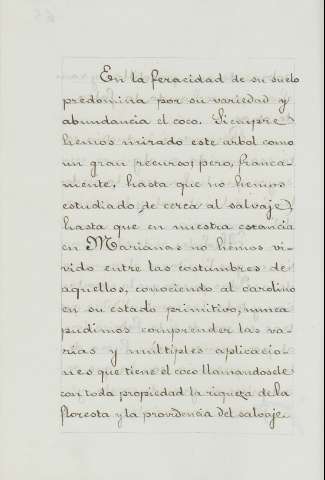 En la feracidad de su suelo
predomina por su variedad y
abundancia el coco. Siempre
hemos mirado este arbol como
un gran recurso; pero, franca-
mente, hasta que no hemos
estudiado de cerca al salvaje,
hasta que en nuestra estancia
en Marianas no hemos vi-
vido entre las costumbres de
aquellos, conociendo al carolino
en su estado primitivo, nunca
pudimos comprender las va-
rias y multiples aplicacio-
nes que tiene el coco llamandosele
con toda propiedad la riqueza de la
floresta y la providencia del salvaje.